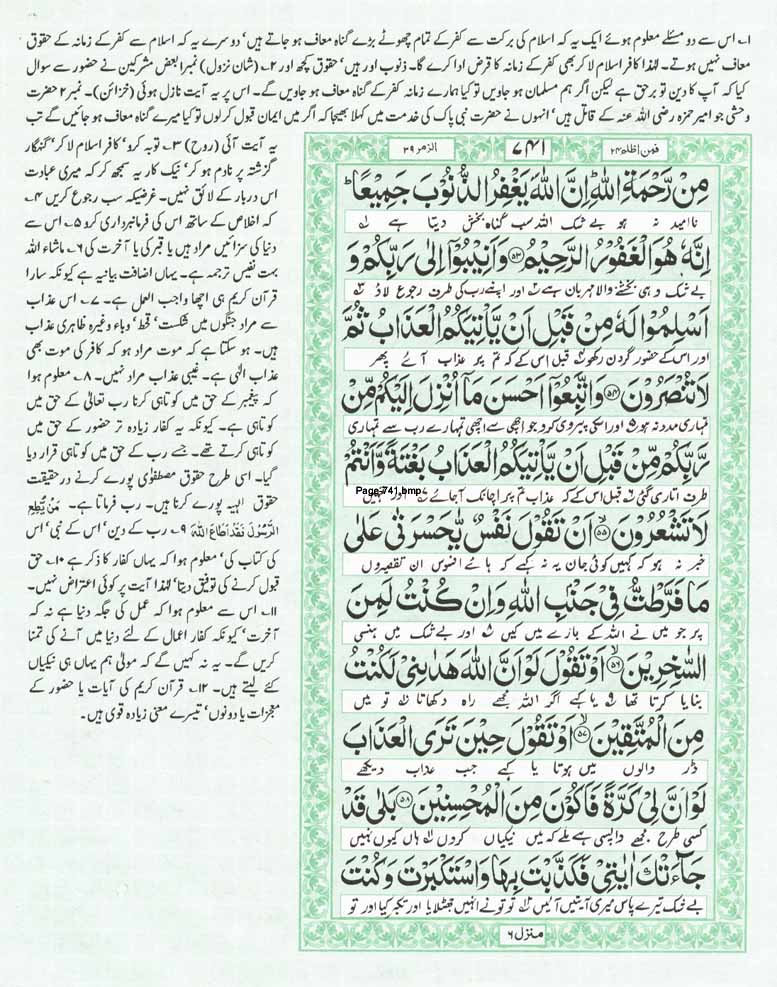 ۱۔ اس سے دو مسئلے معلوم ہوئے ایک یہ کہ اسلام کی برکت سے کفر کے تمام چھوٹے بڑے گناہ معاف ہو جاتے ہیں' دوسرے یہ کہ اسلام سے کفر کے زمانہ کے حقوق
معاف نہیں ہوتے۔ لہٰذا کافر اسلام لا کر بھی کفر کے زمانہ کا قرض ادا کرے گا۔ ذنوب اور ہیں' حقوق کچھ اور ۲۔ (شان نزول) نمبرا بعض مشرکین نے حضور سے سوال
کیا کہ آپ کا دین تو برحق ہے لیکن اگر ہم مسلمان ہو جاویں تو کیا ہمارے زمانہ کفر کے گناہ معاف ہو جاویں گے۔ اس پر یہ آیت نازل ہوئی (خزائن)۔ نمبر ۲ حضرت
وحشی جو امیر حمزہ رضی اللہ عنہ کے قاتل ہیں' انہوں نے حضرت نبی پاک کی خدمت میں کہلا بھیجا کہ اگر میں ایمان قبول کر لوں تو کیا میرے گناہ معاف ہو جائیں گے تب
یہ آیت آئی (روح) ۳۔ توبہ کرو' کافر اسلام لا کر' گنہگار
گزشتہ پر نادم ہو کر' نیک کار یہ سمجھ کر کہ میری عبادت
اس دربار کے لائق نہیں۔ غرضیکہ سب رجوع کریں ۴۔
کہ اخلاص کے ساتھ اس کی فرمانبرداری کرو ۵۔ اس سے
دنیا کی سزائیں مراد ہیں یا قبر کی یا آخرت کی ۶۔ ماشاء اللہ
بہت نفیس ترجمہ ہے۔ یہاں اضافت بیانیہ ہے کیونکہ سارا
قرآن کریم ہی اچھا واجب العمل ہے۔ ۷۔ اس عذاب
سے مراد جنگوں میں شکست' قحط' وباء وغیرہ ظاہری عذاب
ہیں۔ ہو سکتا ہے کہ موت مراد ہو کہ کافر کی موت بھی
عذاب الٰہی ہے۔ غیبی عذاب مراد نہیں۔ ۸۔ معلوم ہوا
کہ پیغمبر کے حق میں کوتاہی کرنا رب تعالیٰ کے حق میں
کوتاہی ہے۔ کیونکہ یہ کفار زیادہ تر حضور کے حق میں
کوتاہی کرتے تھے۔ جسے رب کے حق میں کوتاہی قرار دیا
گیا۔ اسی طرح حقوق مصطفوٰی پورے کرنا در حقیقت
حقوق الٰہیہ پورے کرنا ہیں۔ رب فرماتا ہے۔ مَنْ يُطِعِ
الرَّسُوْلَ فَقَدْ اَطَاعَ اللّٰهَ ۹۔ رب کے دین' اس کے نبی' اس
کی کتاب کی' معلوم ہوا کہ یہاں کفار کا ذکر ہے ۱۰۔ حق
قبول کرنے کی توفیق دیتا' لہٰذا آیت پر کوئی اعتراض نہیں۔
۱۱۔ اس سے معلوم ہوا کہ عمل کی جگہ دنیا ہے نہ کہ
آخرت' کیونکہ کفار اعمال کے لئے دنیا میں آنے کی تمنا
کریں گے۔ یہ نہ کہیں گے کہ مولیٰ ہم یہاں ہی نیکیاں
کئے لیتے ہیں۔ ۱۲۔ قرآن کریم کی آیات یا حضور کے
معجزات یا دونوں' تیسرے معنی زیادہ قوی ہیں۔
فمن اظلم ۲۴
۷۴۱
الزمر ۳۹
مِنْ رَّحْمَةِ اللّٰهِ ؕ اِنَّ اللّٰهَ يَغْفِرُ الذُّنُوْبَ جَمِيْعًا ؕ
ناامید نہ ہو بے شک اللہ سب گناہ بخش دیتا ہے
اِنَّهٗ هُوَ الْغَفُوْرُ الرَّحِيْمُ ﴿۵۳﴾ وَاَنِيْبُوْۤا اِلٰى رَبِّكُمْ وَ
بے شک وہی بخشنے والا مہربان ہے ۲ اور اپنے رب کی طرف رجوع لاؤ
اَسْلِمُوْا لَهٗ مِنْ قَبْلِ اَنْ يَّاْتِيَكُمُ الْعَذَابُ ثُمَّ
اور اس کے حضور گردن رکھو ۴ قبل اس کے کہ تم پر عذاب آئے پھر
لَا تُنْصَرُوْنَ ﴿۵۴﴾ وَاتَّبِعُوْۤا اَحْسَنَ مَاۤ اُنْزِلَ اِلَيْكُمْ مِّنْ
تمہاری مدد نہ ہو ۵ اور اسکی پیروی کرو جو اچھی سے اچھی تمہارے رب سے تمہاری
رَّبِّكُمْ مِّنْ قَبْلِ اَنْ يَّاْتِيَكُمُ الْعَذَابُ بَغْتَةً وَّاَنْتُمْ
طرف اتاری گئی ۶ قبل اس کے کہ عذاب تم پر اچانک آجائے ۷ اور تمہیں
Page-741.bmp
لَا تَشْعُرُوْنَ ﴿۵۵﴾ اَنْ تَقُوْلَ نَفْسٌ يّٰحَسْرَتٰى عَلٰى
خبر نہ ہو کہ کہیں کوئی جان یہ نہ کہے کہ ہائے افسوس ان تقصیروں
مَا فَرَّطْتُّ فِيْ جَنْۢبِ اللّٰهِ وَاِنْ كُنْتُ لَمِنَ
پر جو میں نے اللہ کے بارے میں کیں ۸ اور بے شک میں ہنسی
السّٰخِرِيْنَ ﴿۵۶﴾ اَوْ تَقُوْلَ لَوْ اَنَّ اللّٰهَ هَدٰىنِيْ لَكُنْتُ
بنایا کرتا تھا ۹ یا کہے اگر اللہ مجھے راہ دکھاتا ۱۰ تو میں
مِنَ الْمُتَّقِيْنَ ﴿۵۷﴾ اَوْ تَقُوْلَ حِيْنَ تَرَى الْعَذَابَ
ڈر والوں میں ہوتا یا کہے جب عذاب دیکھے
لَوْ اَنَّ لِيْ كَرَّةً فَاَكُوْنَ مِنَ الْمُحْسِنِيْنَ ﴿۵۸﴾ بَلٰى قَدْ
کسی طرح مجھے واپسی ملے کہ میں نیکیاں کروں ۱۱ ہاں کیوں نہیں
جَآءَتْكَ اٰيٰتِيْ فَكَذَّبْتَ بِهَا وَاسْتَكْبَرْتَ وَكُنْتَ
بے شک تیرے پاس میری آیتیں آئیں ۱۲ تو تو نے انہیں جھٹلایا اور تکبر کیا اور تو
منزل ۶